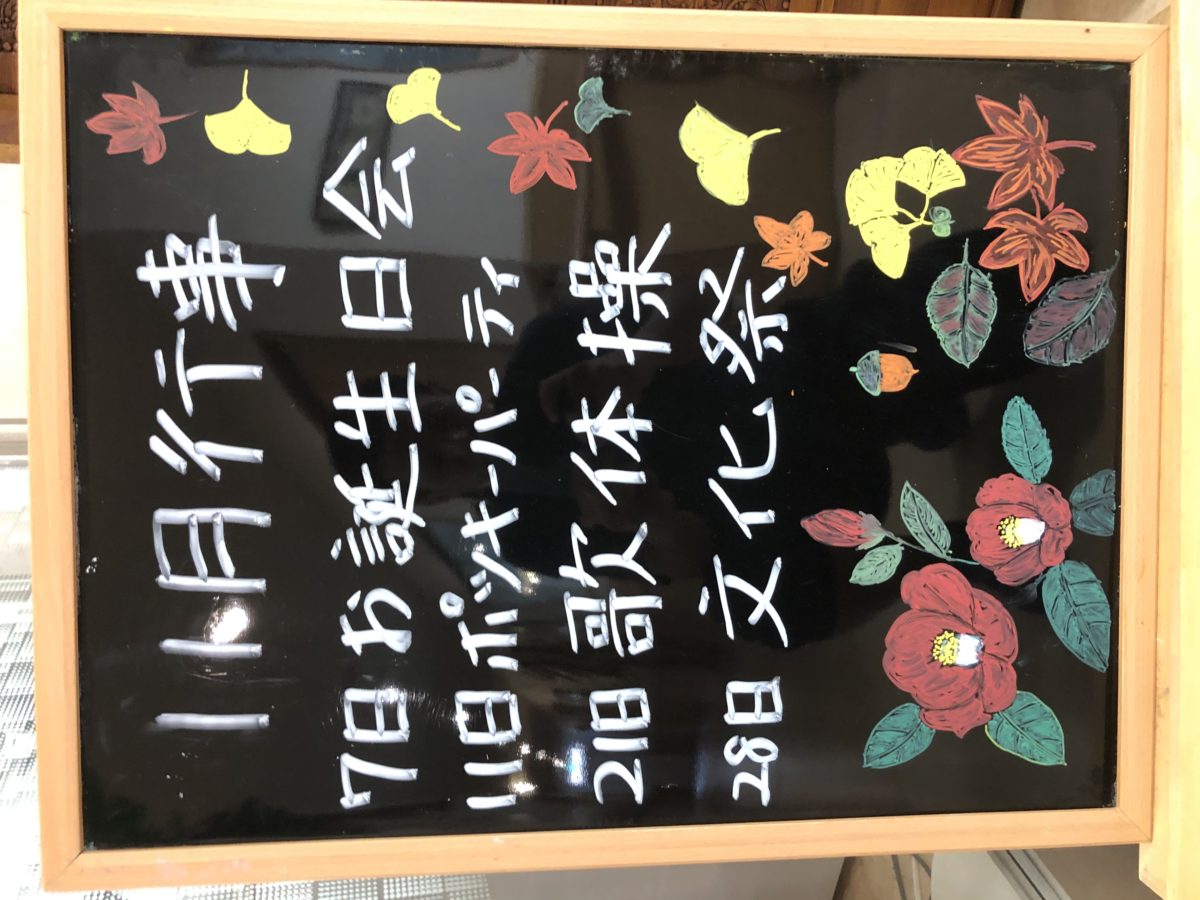 11月行事
7日お誕生日会
11日ポッキーパーティ
21日歌体操
28日文化祭